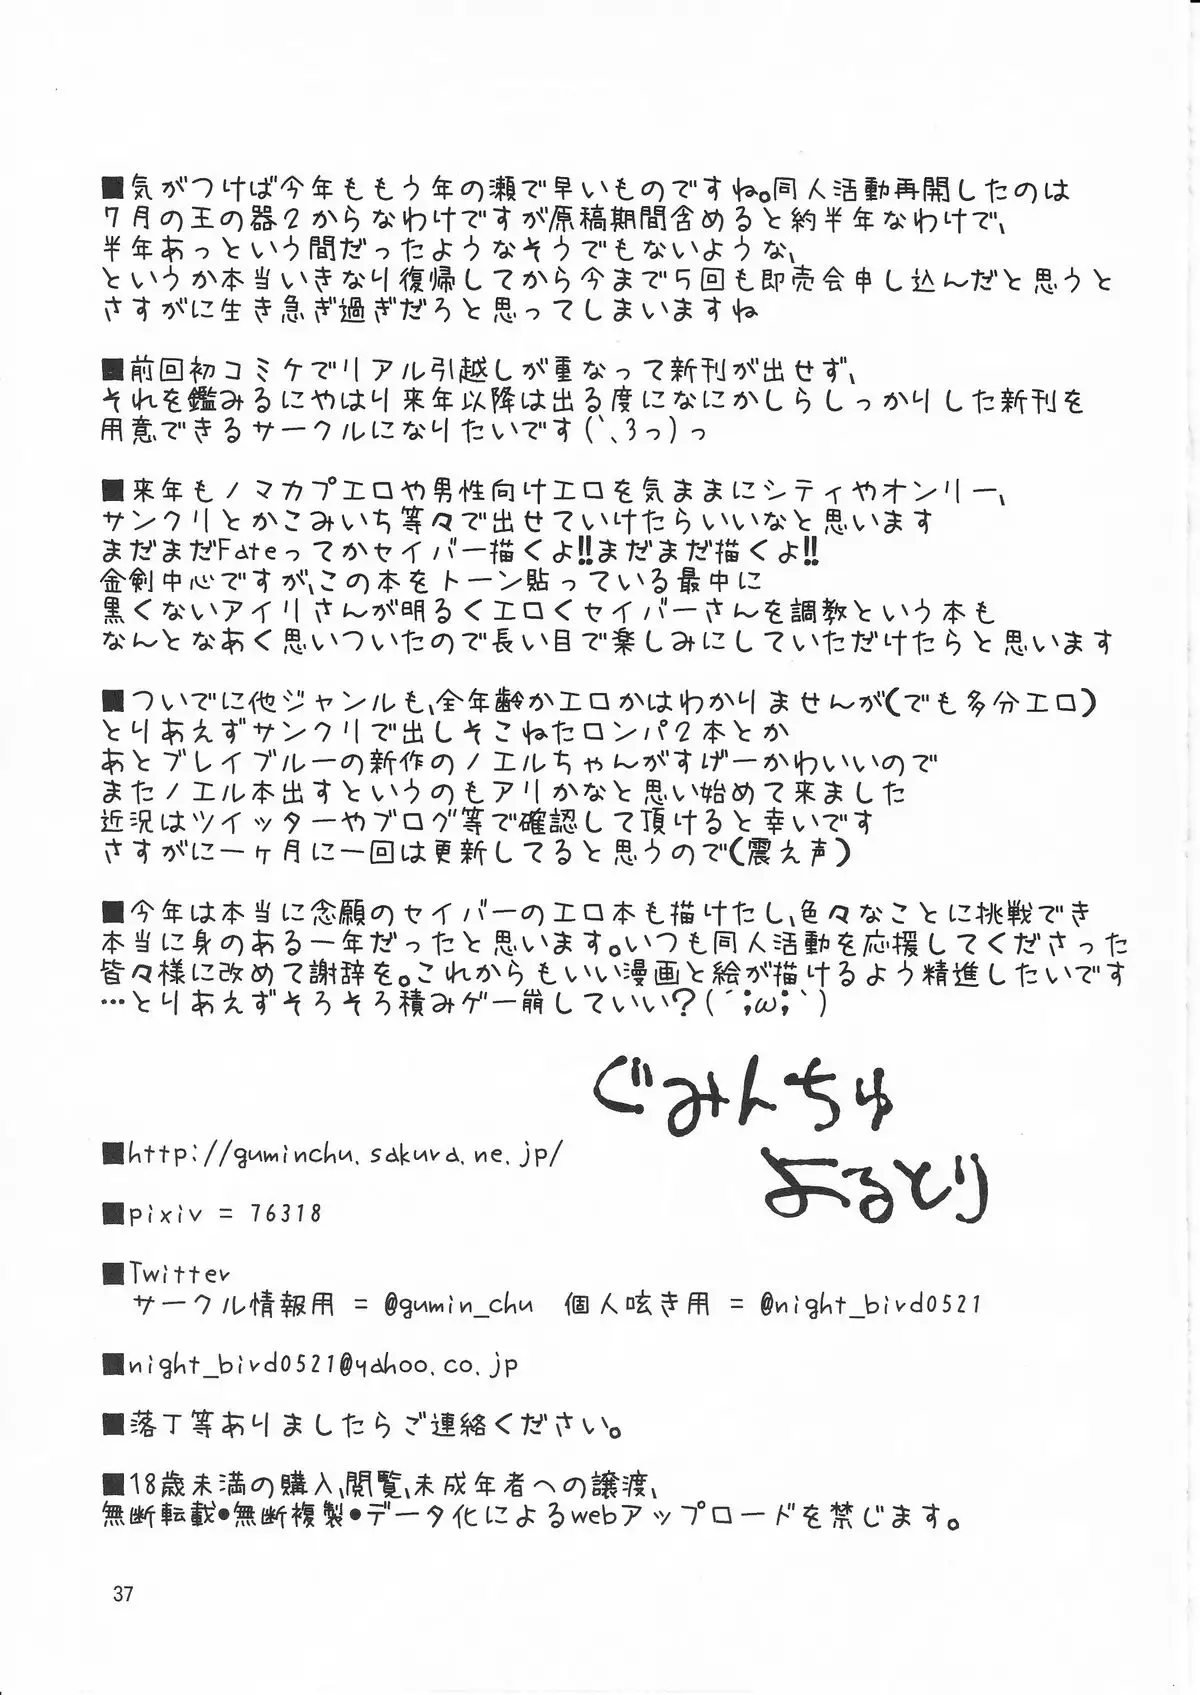 ■気がつけば今年ももう年の瀬で早いものですね。同人活動再開したのは
7月の王の器2からなわけですが原稿期間含めると約半年なわけで、
半年あっという間だったようなそうでもないような、
というか本当いきなり復帰してから今まで5回も即売会申し込んだと思うと
さすがに生き急ぎ過ぎだろと思ってしまいますね
■前回初コミケでリアル引越しが重なって新刊が出せず、
それを鑑みるにやはり来年以降は出る度になにかしらしっかりした新刊を
用意できるサークルになりたいです(`、3っ)っ
■来年もノマカプエロや男性向けエロを気ままにシティやオンリー、
サンクリとかこみいち等々で出せていけたらいいなと思います
まだまだFateってかセイバー描くよ!!まだまだ描くよ!!
金剣中心ですが、この本をトーン貼っている最中に
黒くないアイリさんが明るくエロくセイバーさんを調教という本も
なんとなあく思いついたので長い目で楽しみにしていただけたらと思います
■ついでに他ジャンルも、全年齢かエロかはわかりませんが(でも多分エロ)
とりあえずサンクリで出しそこねたロンパ2本とか
あとブレイブルーの新作のノエルちゃんがすげーかわいいので
またノエル本出すというのもアリかなと思い始めて来ました
近況はツイッターやブログ等で確認して頂けると幸いです
さすがに一ヶ月に一回は更新してると思うので(震え声)
■今年は本当に念願のセイバーのエロ本も描けたし、色々なことに挑戦でき
本当に身のある一年だったと思います。いつも同人活動を応援してくださった
皆々様に改めて謝辞を。これからもいい漫画と絵が描けるよう精進したいです
…とりあえずそろそろ積みゲー崩していい?(´;ω;`)
ぐみんちゅ
よるとり
■http://guminchu.sakura.ne.jp/
■pixiv = 76318
■Twitter
サークル情報用 = @gumin_chu 個人呟き用 = @night_bird0521
■night_bird0521@yahoo.co.jp
■落丁等ありましたらご連絡ください。
■18歳未満の購入、閲覧、未成年者への譲渡、
無断転載●無断複製●データ化によるwebアップロードを禁じます。
37